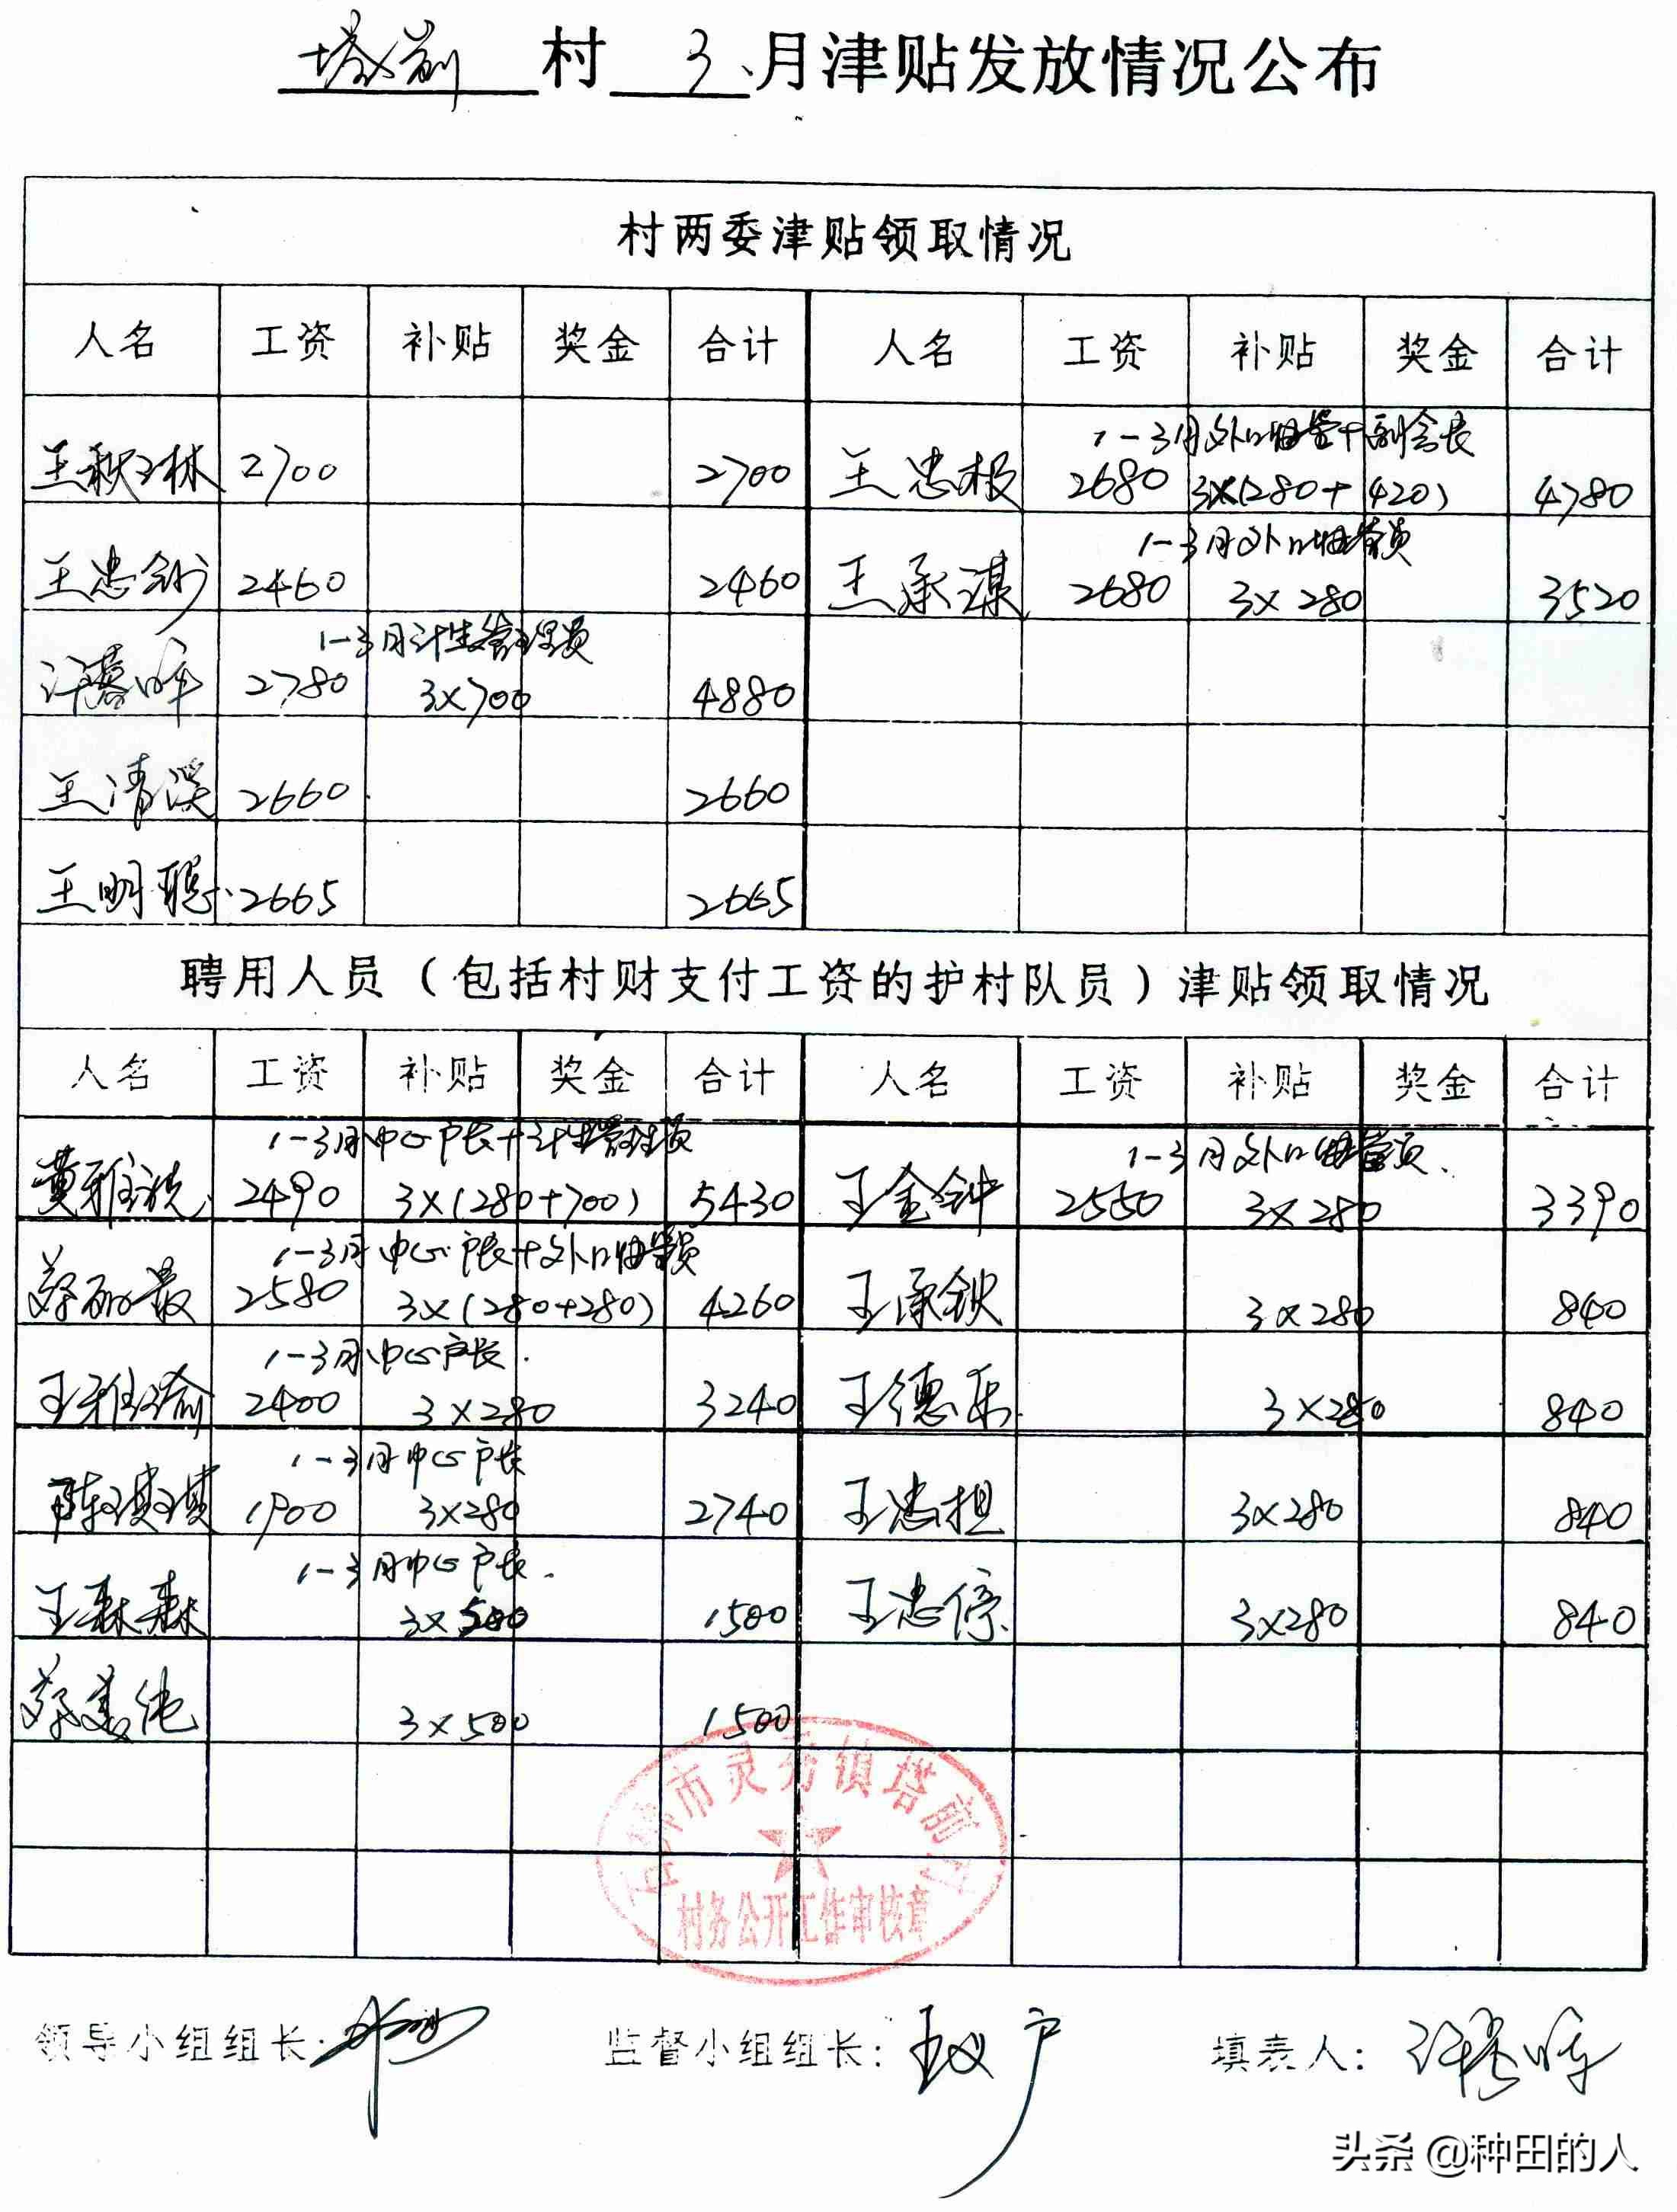 塔前村3月津贴发放情况公布
村两委津贴领取情况
人名 工资 补贴 奖金 合计 人名 工资 补贴 奖金 合计
1-3月外口协管+副会长
王秋林 2700 2700 王忠根 2680 3×(280+420) 4780
1-3月外口协管员
王忠钞 2460 2460 王承谋 2680 3×280 3520
1-3月计生管理员
许蓉晖 2780 3×700 4880
王清溪 2660 2660
王明聪 2665 2665
聘用人员（包括村财支付工资的护村队员）津贴领取情况
人名 工资 补贴 奖金 合计 人名 工资 补贴 奖金 合计
1-3月中心户长+计生管理员 1-3月外口协管员
黄雅 2490 3×(280+700) 5430 王金钟 2550 3×280 3390
1-3月中心户长+外口协管员
蔡丽最 2580 3×(280+280) 4260 王承钦 3×280 840
1-3月中心户长
王雅瑜 2400 3×280 3240 王德东 3×280 840
1-3月中心户长
陈瑛瑛 1900 3×280 2740 王忠担 3×280 840
1-3月中心户长
王森森 3×500 1500 王忠停 3×280 840
蔡美纯 3×500 1500
石狮市灵秀镇塔前村
村务公开工作审核章
领导小组组长: 监督小组组长: 王 填表人: 许蓉晖
头条 @种田的人